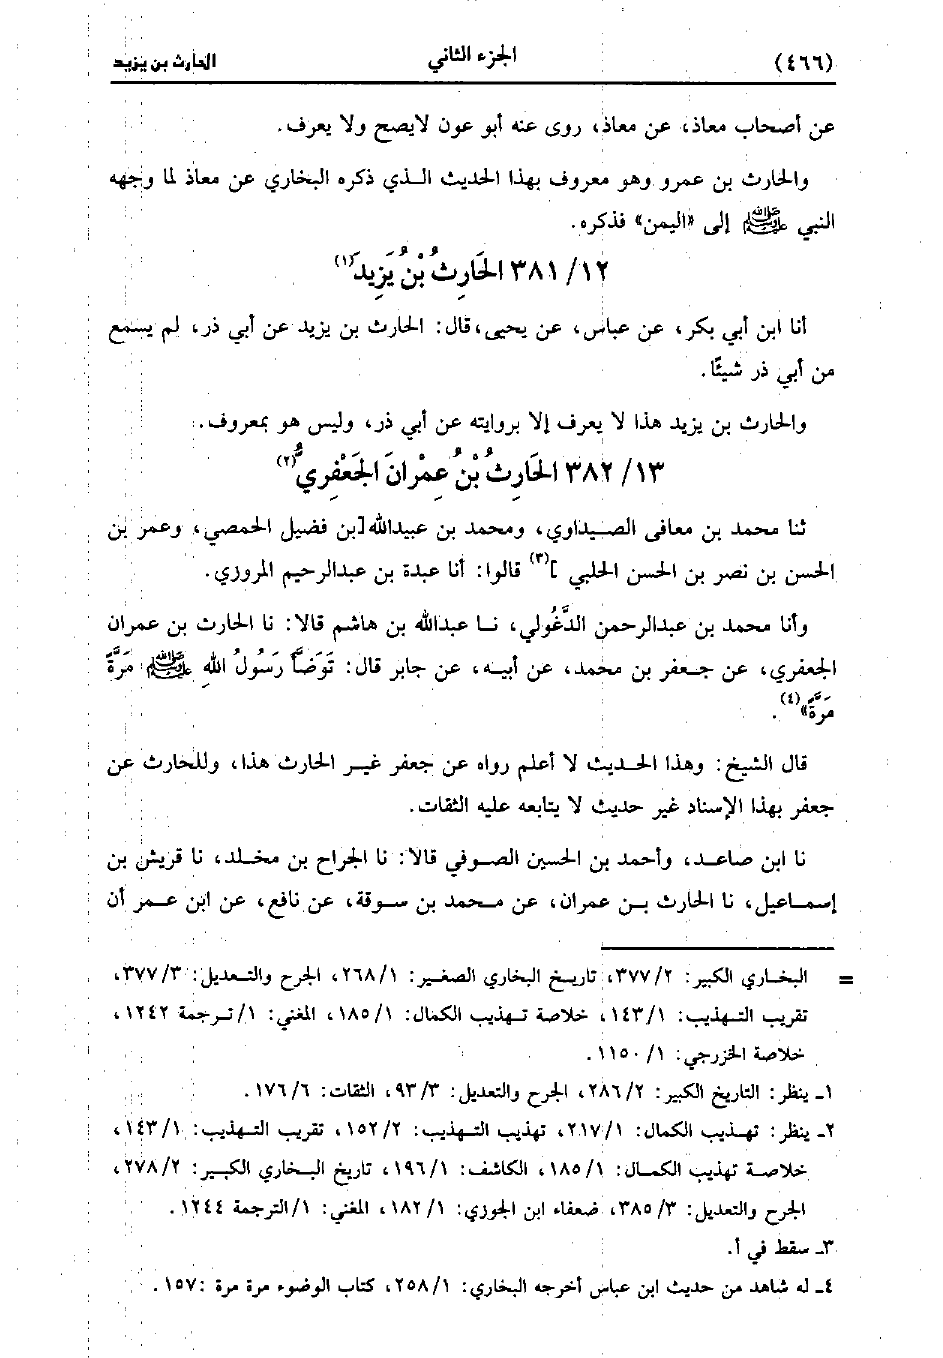 (٤٦٦) الجزء الثاني الحارث بن يزيد
عن أصحاب معاذ، عن معاذ، روى عنه أبو عون لايصح ولا يعرف.
والحارث بن عمرو وهو معروف بهذا الحديث الـذي ذكره البخاري عن معاذ لما وجهه
النبي ﷺ إلى «اليمن» فذكره.
١٢/ ٣٨١ الحَارِثُ بْنُ يَزِيدَ(١)
أنا ابن أبي بكر، عن عباس، عن يحيى، قال: الحارث بن يزيد عن أبي ذر، لم يسمع
من أبي ذر شيئًا.
والحارث بن يزيد هذا لا يعرف إلا بروايته عن أبي ذر، وليس هو بمعروف.
١٣/ ٣٨٢ الحَارِثُ بْنُ عِمْرانَ الجَعْفِريُّ(٢)
ثنا محمد بن معافى الصـيداوي، ومحمد بن عبيدالله[بن فضيل الحمصي، وعمر بن
الحسن بن نصر بن الحسن الحلبي ](٣) قالوا: أنا عبدة بن عبدالرحيم المروزي.
وأنا محمد بن عبدالرحمن الدَّغُولي، نـا عبدالله بن هاشم قالا: نا الحارث بن عمران
الجعفري، عن جـعفر بن محمد، عن أبيـه، عن جابر قال: تَوَضأَّ رَسُولُ اللهِ ﷺ مَرَّةً
مَرَّةً»(٤).
قال الشيخ: وهذا الحـديث لا أعلم رواه عن جعفر غيـر الحارث هذا، وللحارث عن
جعفر بهذا الإسناد غير حديث لا يتابعه عليه الثقات.
نا ابن صاعـد، وأحمد بن الحسين الصـوفي قالا: نا الجراح بن مخلـد، نا قريش بن
إسمـاعيل، نا الحارث بـن عمران، عن مـحمد بن سـوقة، عن نافع، عن ابن عـمر أن
= البخـاري الكبير: ٢/ ٣٧٧، تاريـخ البخاري الصغير: ١/ ٢٦٨، الجرح والتـعديل: ٣/ ٣٧٧،
تقريب التـهذيب: ١/ ١٤٣، خلاصة تـهذيب الكمال: ١/ ١٨٥، المغني: ١/ تـرجمة ١٢٤٢،
خلاصة الخزرجي: ١/ ١١٥٠.
١ـ ينظر: التاريخ الكبير: ٢/ ٢٨٦، الجرح والتعديل: ٣/ ٩٣، الثقات: ٦/ ١٧٦.
٢ـ ينظر: تهـذيب الكمال: ١/ ٢١٧، تهذيب التـهذيب: ٢/ ١٥٢، تقريب التـهذيب: ١/ ١٤٣،
خلاصـة تهذيب الكمـال: ١/ ١٨٥، الكاشف: ١/ ١٩٦، تاريخ البـخاري الكبـير: ٢/ ٢٧٨،
الجرح والتعديل: ٣/ ٣٨٥، ضعفاء ابن الجوزي: ١/ ١٨٢، المغني: ١/ الترجمة ١٢٤٤.
٣ـ سقط في أ.
٤ـ له شاهد من حديث ابن عباس أخرجه البخاري: ١/ ٢٥٨، كتاب الوضوء مرة مرة :١٥٧.